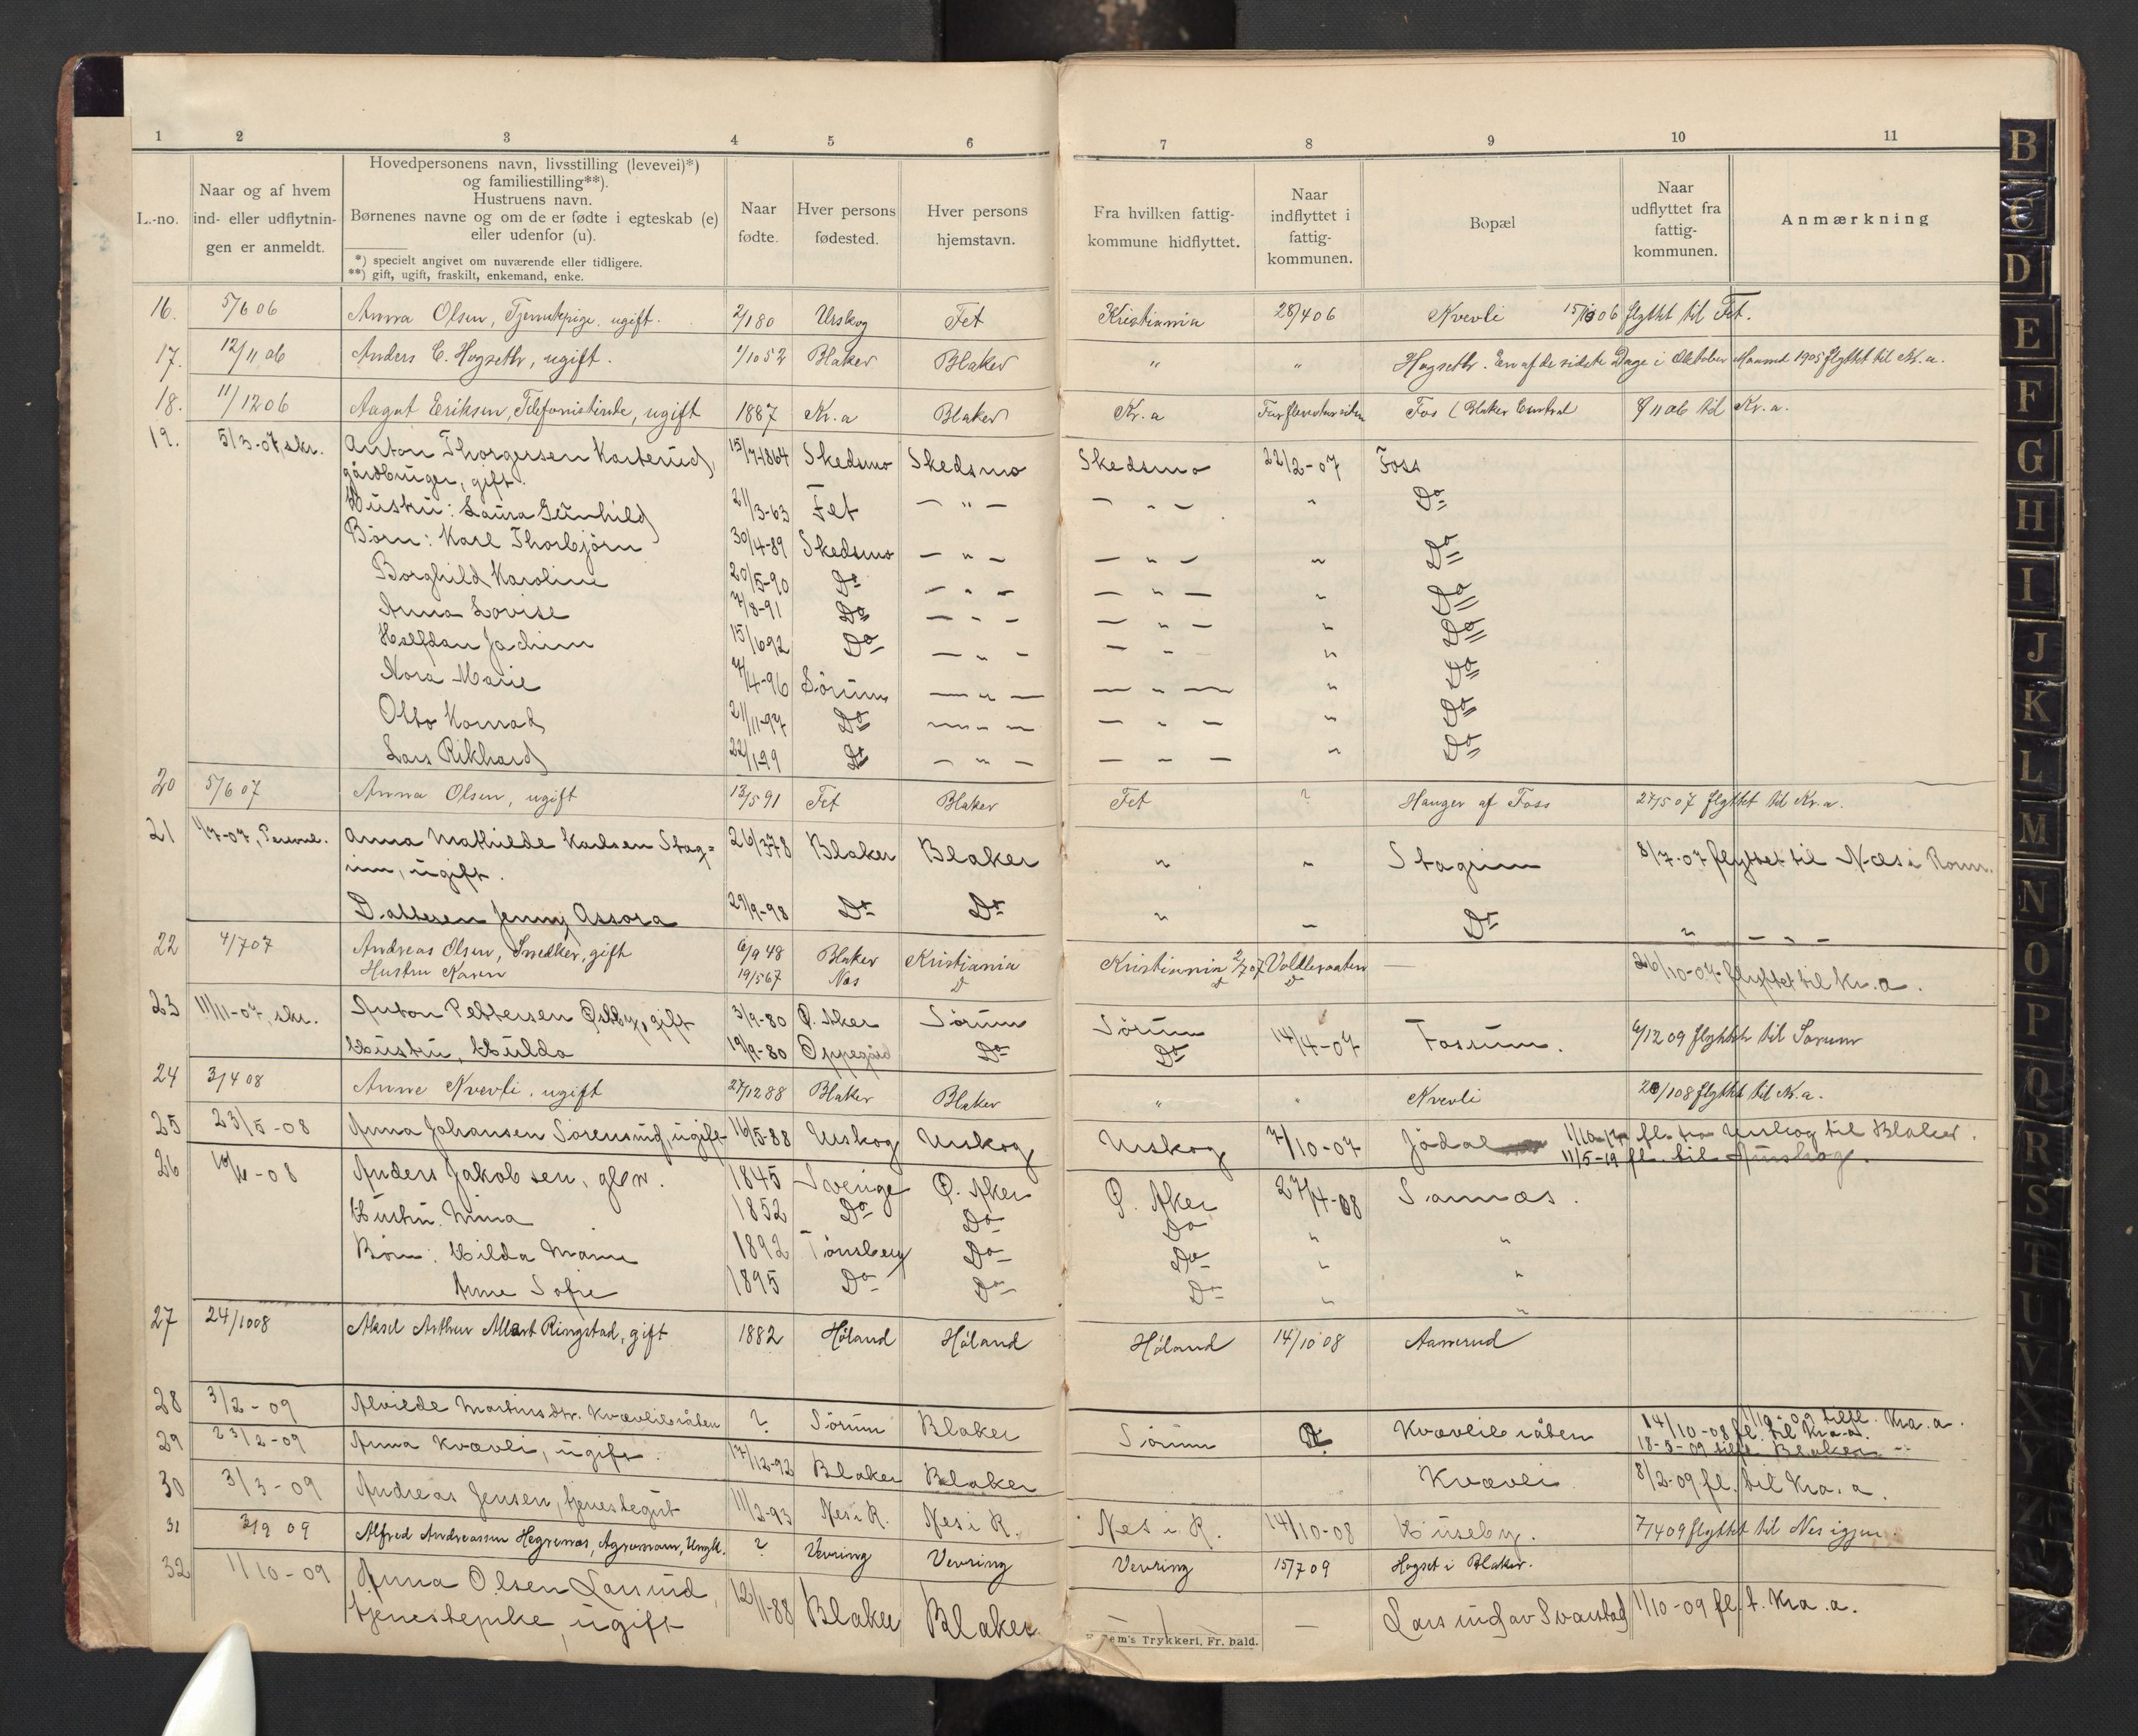 1 2 3 4 5 6 7 8 9 10 11
L.-no.
Naar og af hvem
ind- eller udflytnin-
gen er anmeldt.
Hovedpersonens navn, livsstilling (levevei)*)
og familiestilling**).
Hustruens navn.
Børnenes navne og om de er fødte i egteskab (e)
eller udenfor (u).
*) specielt angivet om nuværende eller tidligere.
**) gift, ugift, fraskilt, enkemand, enke.
Naar
fødte.
Hver persons
fødested.
Hver persons
hjemstavn.
Fra hvilken fattig-
kommune hidflyttet.
Naar
indflyttet i
fattig-
kommunen.
Bopæl
Naar
udflyttet fra
fattig-
kommunen.
Anmærkning
16. 5/6 06 Anna Olsen, Tjenestepige. ugift. 2/1 80 Urskog Fet Kristiania 28/4 06 Kvevli flyttet til Fet.
17. 12/11 06 Anders C. Hogseth, ugift. 1/10 52 Blaker Blaker " " Hogseth. En af de sidste Dage i Oktober Maaned 1905 flyttet til Kr.a.
18. 11/12 06 Aagot Eriksen, Telefonistinde, ugift 1887 Kr.a Blaker Kr.a Fos (Blaker Central 8/11 06 til Kr.a.
19. 5/3-07, skr. Anton Thorgersen Karterud, 15/7-1864 Skedsmo Skedsmo Skedsmo 22/2-07 Foss
gårdbruger, gift.
Hustru: Laura Gunhild 21/3-63 Fet — " — — " — " Do
Børn: Karl Thorbjørn 30/4-89 Skedsmo — " — — " — " Do
Borghild Karoline 20/5-90 Do — " — — " — " Do
Anna Lovise 7/8-91 Do — " — — " — " Do
Halfdan Jachim 15/6 92 Do — " — — " — " Do
Nora Marie 7/4-96 Sörum — " — — " — " Do
Otto Konrad 21/11-97 Do — " — — " — " Do
Lars Rikhard 22/1-99 Do — " — — " — " Do
20 5/6 07 Anna Olsen, ugift 13/5 91 Fet Blaker Fet ? Hauger af Foss 27/5 07 flyttet til Kr.a.
21 1/7-07, Personl. Anna Mathilde Karlsen Stag- 26/3 78 Blaker Blaker " " Stagrim 8/7-07 flyttet til Næs i Rom.
rim, ugift.
Datteren Jenny Assora 29/9-98 Do Do " " Do " — " —
22 4/7 07 Andreas Olsen, Snedker, gift 6/9 48 Blaker Kristiania Kristiania 2/7 07 — 26/10-07 flyttet til Kr.a.
Hustru Karen 19/5 67 Nes D D D
23 11/11-07, skr. Anton Pettersen Østby, gift 3/9-80 Ø. Aker Sörum Sörum 14/4-07 Fossum. 6/12 09 flyttet til Sørum
Hustru, Hulda 19/9-80 Oppegård Do Do
24 3/4 08 Anne Kvevli, ugift 27/12 88 Blaker Blaker " " Kvevli flyttet til Kr.a.
25 23/5-08 Anna Johansen Sörensrud, ugift 16/5-88 Urskog Urskog Urskog 7/10-07 Jödal fl. fra Urskog til Blaker.
11/5-19 fl. til Aurskog.
26 Anders Jakobsen, 1845 Sverige Ø. Aker Ø. Aker 27/4-08 Sannæs.
Hustru. Mina 1852 Do Do Do " "
Börn: Hilda Marie 1892 Tønsberg Do Do " "
Anne Sofie 1895 Do Do Do " "
27 24/10 08 Aksel Arthur Albert Ringstad, gift 1882 Höland Höland Höland 14/10 08 Aamrud
28 3/2-09 Alvilde Martinsdtr. Kvævlieiåten ? Sörum Blaker Sörum Kvævlieiåten 14/10-08 fl. til Kra.a.
29 23/2-09 Anna Kvævli, ugift. 17/12-92 Blaker Blaker Kvævli 8/2-09 fl. til Kra.a.
30 3/3-09 Andreas Jensen, tjenestegut 11/2-93 Nes i R. Nes i R. Nes i R. 14/10-08 Huseby. 7/4 09 flyttet til Nes igjen.
31 3/9 09 Alfred Andreassen Hegrenæs, Agronom, Ungk. ? Vevring Vevring Vevring 15/7 09 Hogset i Blaker.
32 1/10-09 Anna Olsen Larsrud, 12/11-88 Blaker Blaker — — Larsrud av Svarstad 1/10-09 fl. t. Kra.a.
tjenestepike, ugift
Trykkeri, Fr.hald.
B
C
D
E
F
G
H
I
J
K
L
M
N
O
P
Q
R
S
T
U
V
X
Y
Z